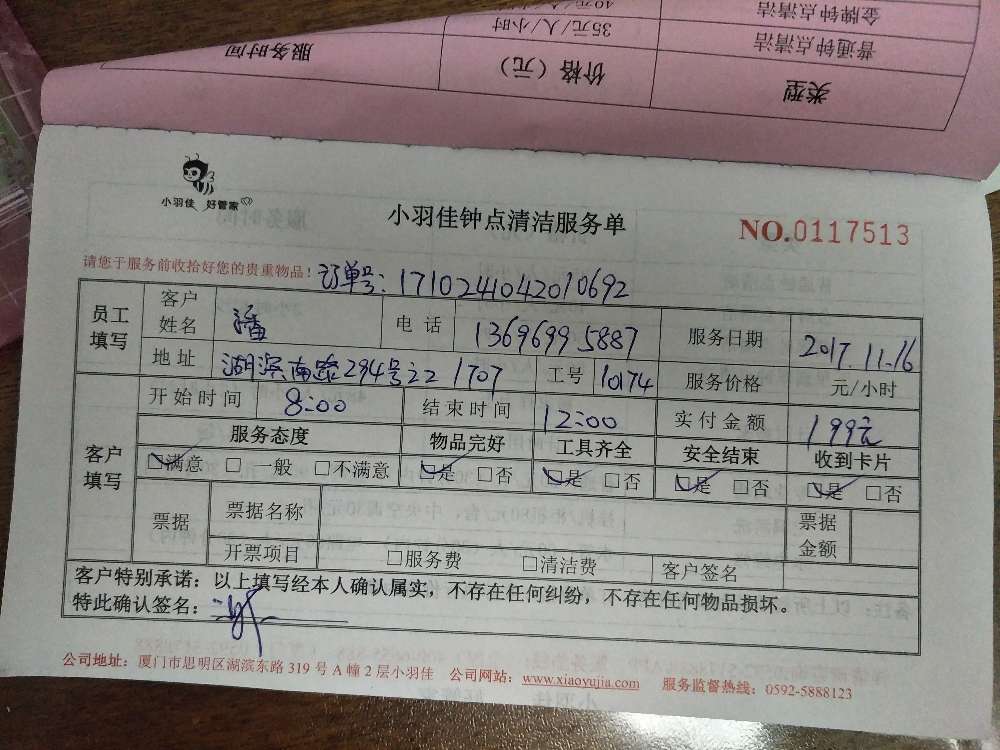 40元/人/小时
金牌钟点清洁
35元/人/小时
普通钟点清洁
服务时间
价格（元）
类型
小羽佳 好管家
小羽佳钟点清洁服务单
NO.0117513
请您于服务前收拾好您的贵重物品! 订单号: 1710241042010692
员工填写 客户姓名 潘 电话 13696995887 服务日期 2017.11.16
地址 湖滨南路294号22 1707 工号 10174 服务价格 元/小时
开始时间 8:00 结束时间 12:00 实付金额 199元
客户填写 服务态度 物品完好 工具齐全 安全结束 收到卡片
☑满意 □一般 □不满意 ☑是 □否 ☑是 □否 ☑是 □否 ☑是 □否
票据 票据名称 票据金额
开票项目 □服务费 □清洁费 客户签名
客户特别承诺：以上填写经本人确认属实，不存在任何纠纷，不存在任何物品损坏。
特此确认签名：
公司地址：厦门市思明区湖滨东路 319 号 A 幢 2 层小羽佳 公司网站：www.xiaoyujia.com 服务监督热线：0592-5888123